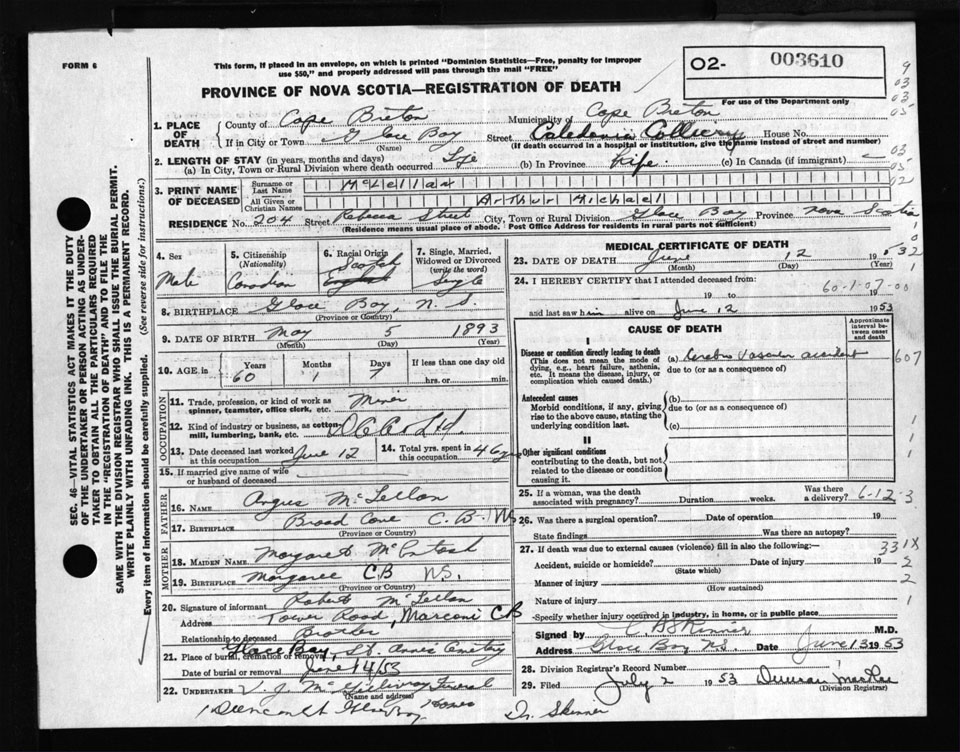 FORM 6
This form, if placed in an envelope, on which is printed "Dominion Statistics—Free, penalty for improper
use $50," and properly addressed will pass through the mail "FREE"
02- 003610
For use of the Department only
PROVINCE OF NOVA SCOTIA—REGISTRATION OF DEATH
1. PLACE OF DEATH
County of Cape Breton Municipality of Cape Breton
If in City or Town Glace Bay Street Caledonia Colliery House No.
(Name) (If death occurred in a hospital or institution, give the name instead of street and number)
2. LENGTH OF STAY (in years, months and days)
(a) In City, Town or Rural Division where death occurred Life (b) In Province Life (c) In Canada (if immigrant) —
3. PRINT NAME OF DECEASED
Surname or Last Name McLellan
All Given or Christian Names Arthur Michael
RESIDENCE No. 204 Street Rebecca Street City, Town or Rural Division Glace Bay Province Nova Scotia
(Residence means usual place of abode. Post Office Address for residents in rural parts not sufficient)
4. Sex Male
5. Citizenship (Nationality) Canadian
6. Racial Origin Scotch
7. Single, Married, Widowed or Divorced (write the word) Single
8. BIRTHPLACE Glace Bay, N. S.
(Province or Country)
9. DATE OF BIRTH May 5 1893
(Month) (Day) (Year)
10. AGE in Years 60 Months 1 Days 7 If less than one day old hrs. or min.
OCCUPATION
11. Trade, profession, or kind of work as spinner, teamster, office clerk, etc. Miner
12. Kind of industry or business, as cotton mill, lumbering, bank, etc. D C Co Ltd.
13. Date deceased last worked at this occupation June 12
14. Total yrs. spent in this occupation 46 yrs
15. If married give name of wife or husband of deceased
FATHER
16. NAME Angus McLellan
17. BIRTHPLACE Broad Cove C. B. NS
(Province or Country)
MOTHER
18. MAIDEN NAME Margaret McIntosh
19. BIRTHPLACE Margaree CB NS.
(Province or Country)
20. Signature of informant Robert McLellan
Address Tower Road, Marconi CB
Relationship to deceased Brother
21. Place of burial, cremation or removal Glace Bay, St. Annes Cemetery
Date of burial or removal June 14/53
22. UNDERTAKER V. J. McGillivray Funeral Home
(Name and address)
Duncan St Glace Bay
MEDICAL CERTIFICATE OF DEATH
23. DATE OF DEATH June 12 1953
(Month) (Day) (Year)
24. I HEREBY CERTIFY that I attended deceased from:
19 to 19
60-1-07-00
and last saw him alive on June 12 1953
CAUSE OF DEATH
Approximate interval between onset and death
I
Disease or condition directly leading to death
(This does not mean the mode of dying, e.g., heart failure, asthenia, etc. It means the disease, injury, or complication which caused death.)
(a) Cerebro Vascular accident
due to (or as a consequence of)
607
Antecedent causes
Morbid conditions, if any, giving rise to the above cause, stating the underlying condition last.
(b)
due to (or as a consequence of)
(c)
II
Other significant conditions
contributing to the death, but not related to the disease or condition causing it.
25. If a woman, was the death associated with pregnancy? Duration weeks. Was there a delivery? 6-12-3
26. Was there a surgical operation? Date of operation 19
State findings Was there an autopsy?
27. If death was due to external causes (violence) fill in also the following: 331X
Accident, suicide or homicide? Date of injury 19
(State which)
Manner of injury
(How sustained)
Nature of injury
Specify whether injury occurred in industry, in home, or in public place
Signed by Skinner M.D.
Address Glace Bay N.S. Date June 13 1953
28. Division Registrar's Record Number
29. Filed July 2 1953 Duncan MacRae
(Division Registrar)
Dr. Skinner
SEC. 46—VITAL STATISTICS ACT MAKES IT THE DUTY
OF THE UNDERTAKER OR PERSON ACTING AS UNDER-
TAKER TO OBTAIN ALL THE PARTICULARS REQUIRED
IN THE "REGISTRATION OF DEATH" AND TO FILE THE
SAME WITH THE DIVISION REGISTRAR WHO SHALL ISSUE THE BURIAL PERMIT.
WRITE PLAINLY WITH UNFADING INK. THIS IS A PERMANENT RECORD.
Every item of information should be carefully supplied. (See reverse side for instructions.)